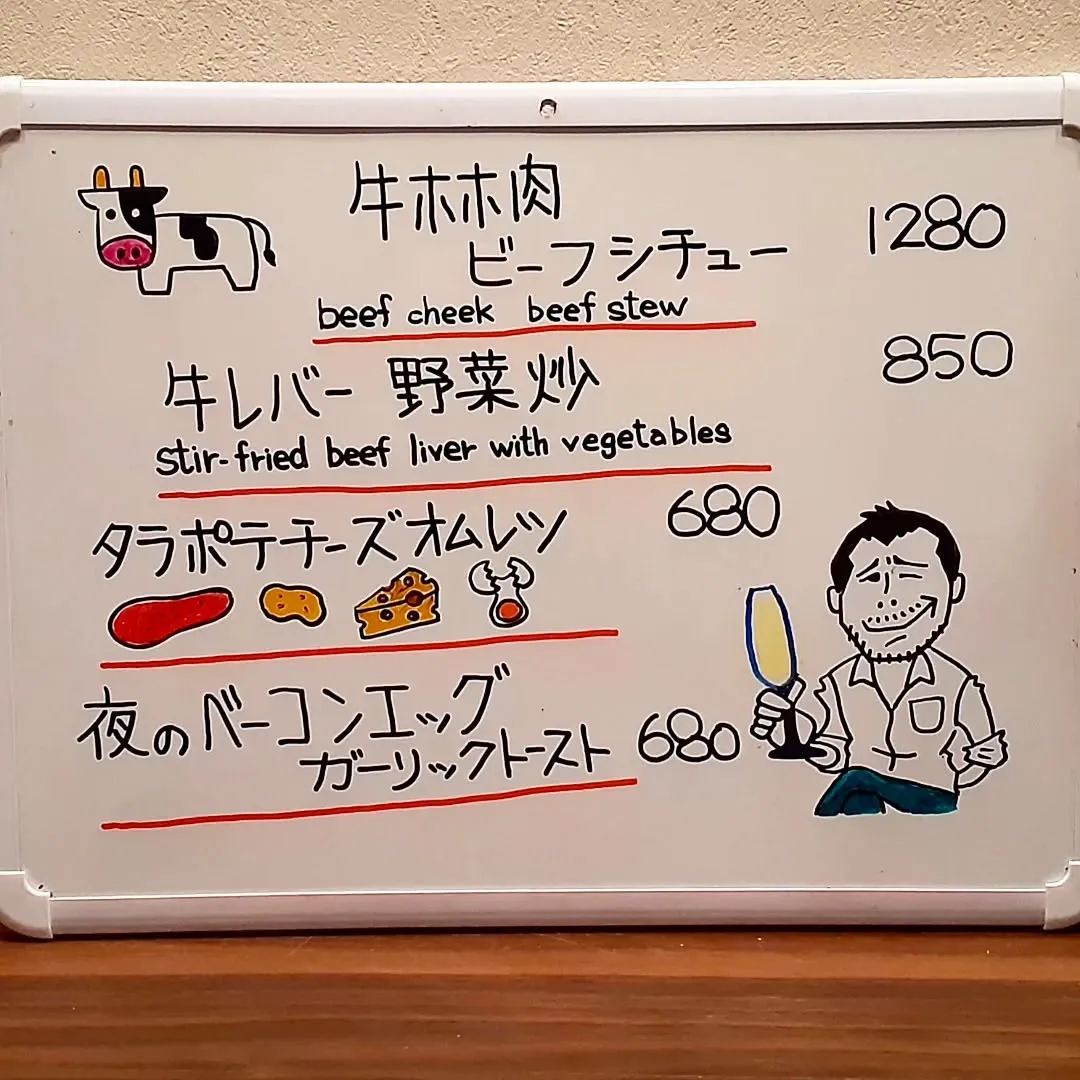 牛ホホ肉
ビーフシチュー 1280
beef cheek beef stew
牛レバー 野菜炒 850
stir-fried beef liver with vegetables
タラポテチーズオムレツ 680
夜のベーコンエッグ
ガーリックトースト 680